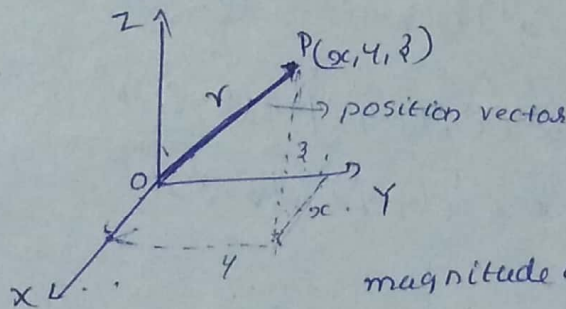 Z
P(x, y, z)
r
position vector
z
O
x
Y
y
X
magnitude